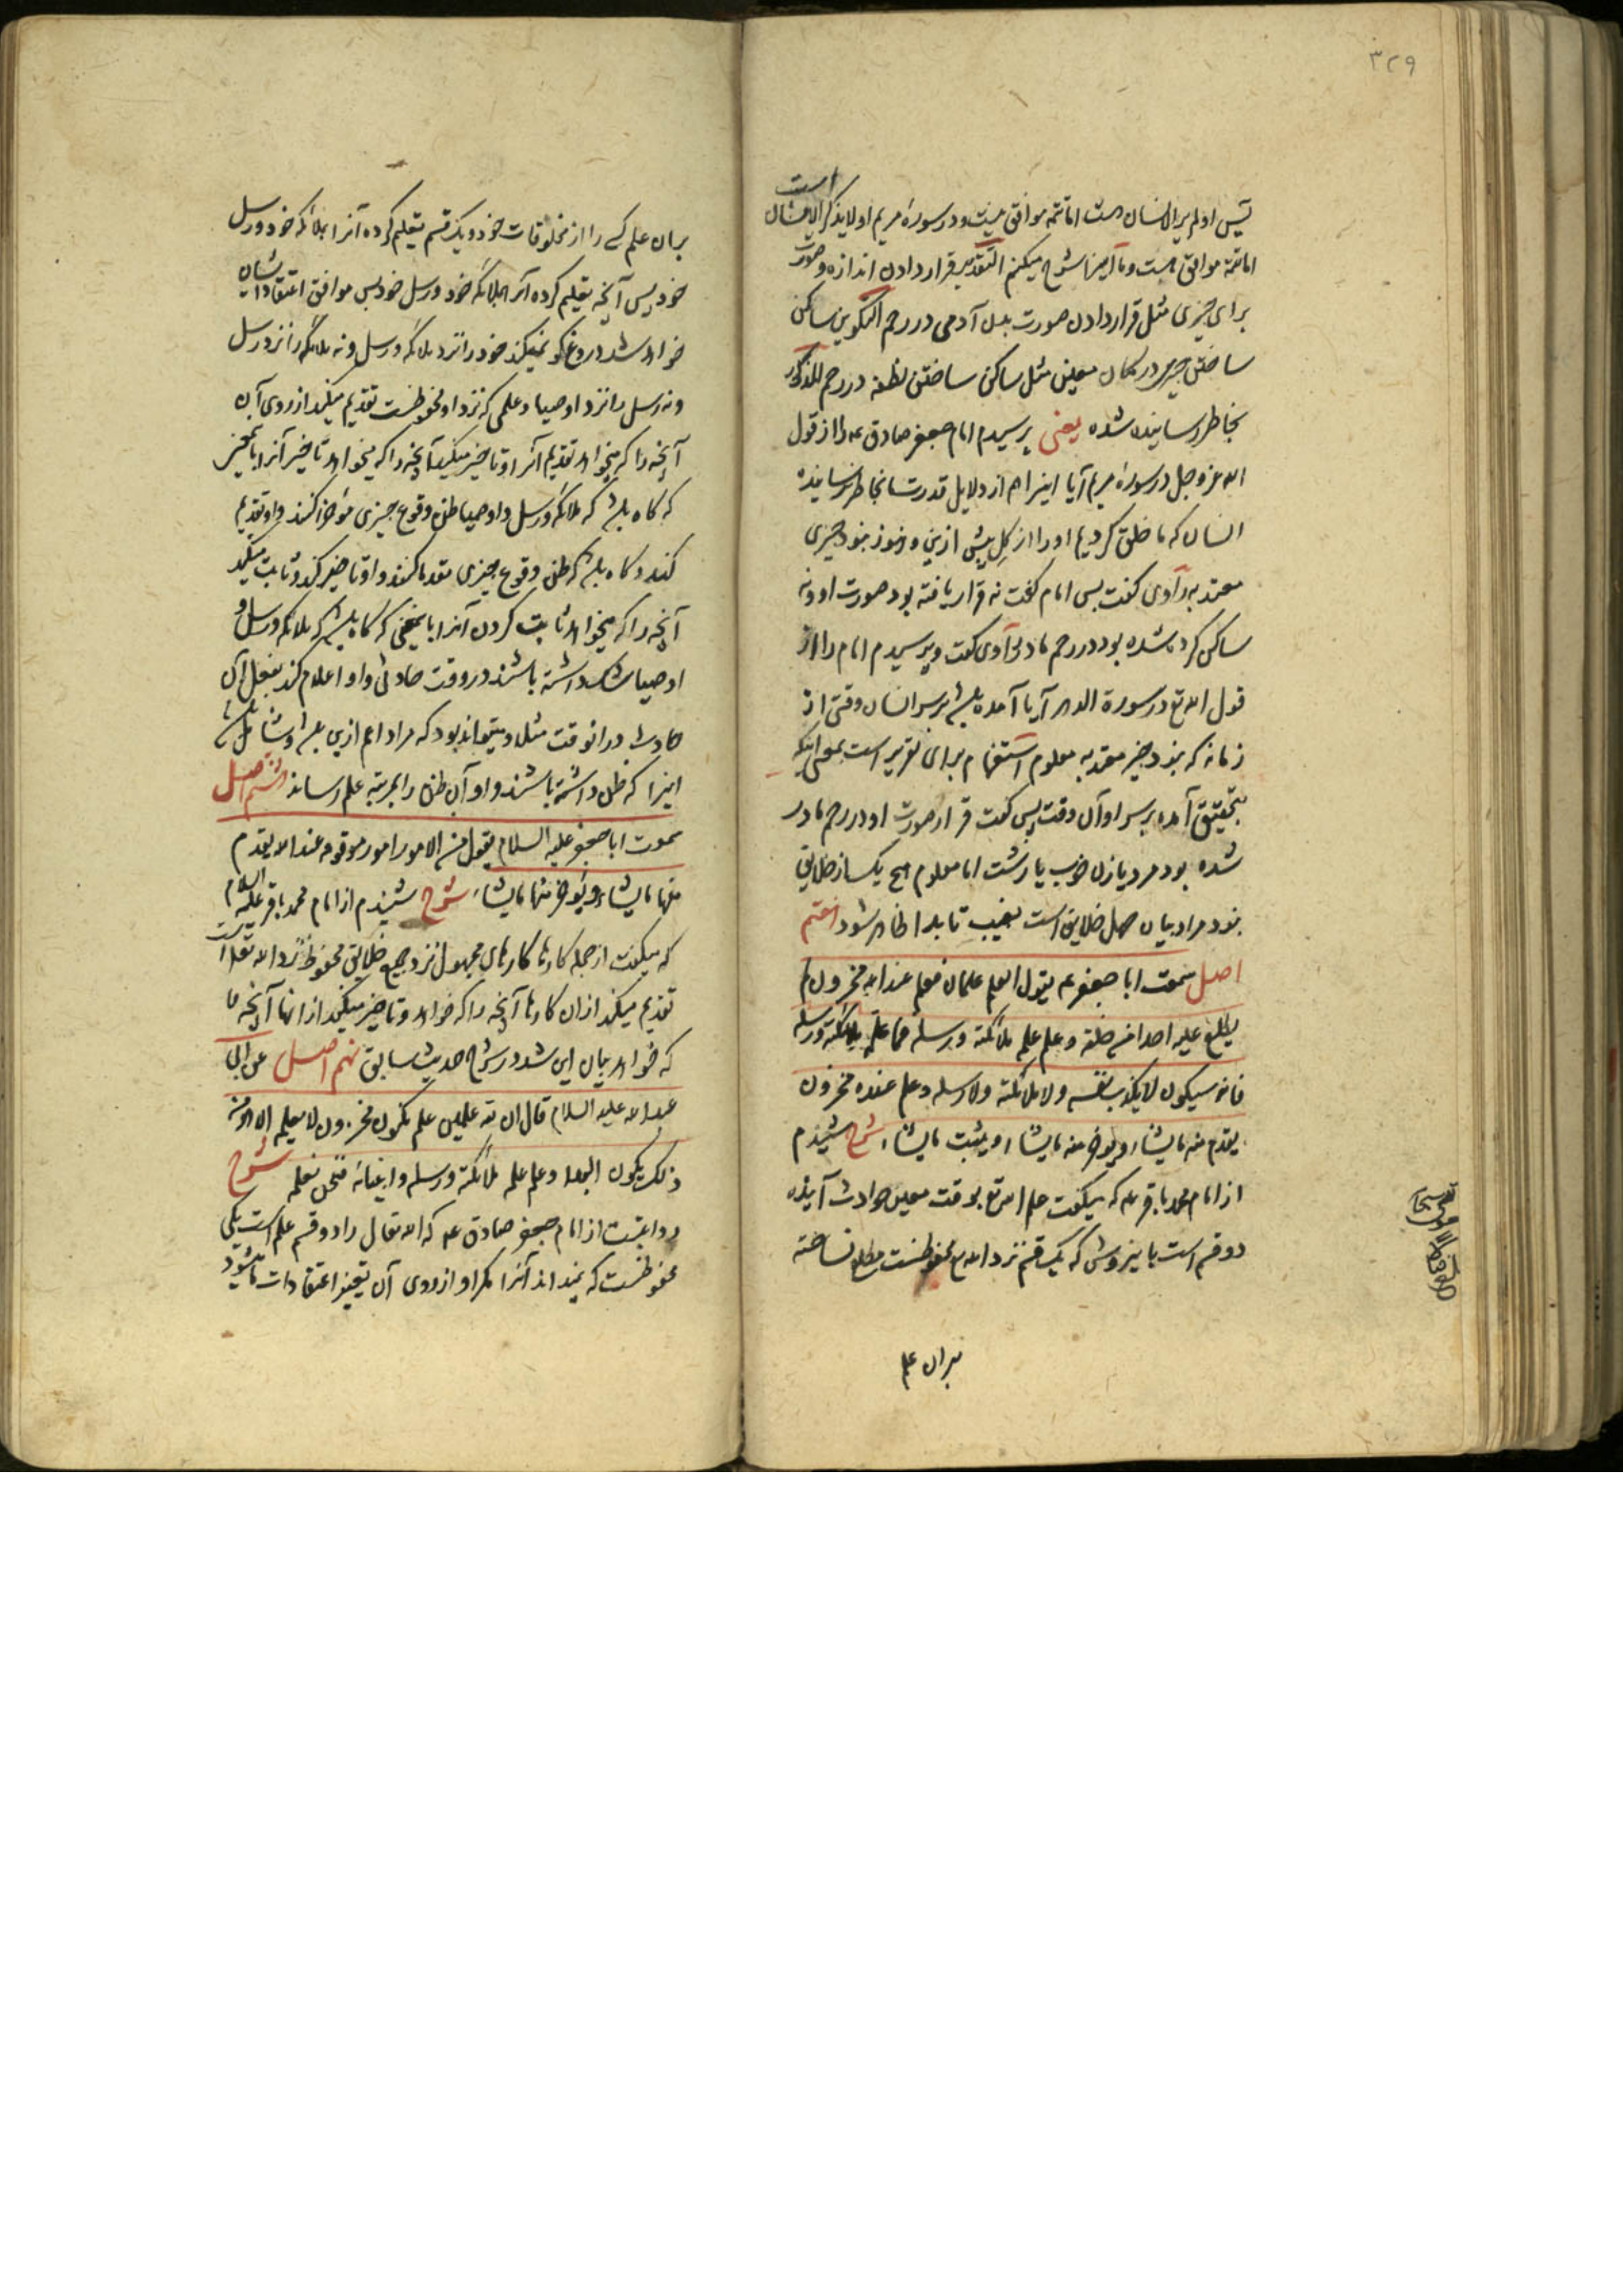 ۳۲۹
یس اولم یر الانسان هست اما تتمه موافق نیست و در سورهٔ مریم اولا یذکر الانسان است
اما تتمه موافق هست و ما آنرا شرح میکنیم التقدیر قرار دادن اندازه و صورت
برای چیزی مثل قرار دادن صورت بدن آدمی در رحم التکوین ساکن
ساختن چیزی در مکان معین مثل ساکن ساختن نطفه در رحم المذکور
بخاطر رسانیده شده یعنی پرسیدم امام جعفر صادق ع را از قول
الله عز و جل در سورهٔ مریم آیا اینرا هم از دلایل قدرت ما بخاطر نرسانیده
انسان که ما خلق کردیم او را از گل پیش ازین و هنوز نبود چیزی
معتد به راوی گفت پس امام گفت نه قرار یافته بود صورت او و نه
ساکن کرده شده بود در رحم مادر راوی گفت و پرسیدم امام را از
قول الله تع در سورة الدهر آیا آمده باشد بر سر انسان وقتی از
زمانه که نبود چیز معتد به معلوم استفهام برای تقریر است بمعنی اینکه
بتحقیق آمده بر سر او آن وقت پس گفت قرار صورت او در رحم مادر
شده بود مرد یا زن خوب یا زشت اما معلوم هیچ یک از خلایق
نبود مراد بیان جهل خلایق است بغیب تا بداء ظاهر شود هفتم
اصل سمعت ابا جعفر ع یقول العلم علمان فعلم عند الله مخزون لم
یطلع علیه احدا من خلقه و علم علمه ملائکته و رسله فما علمه ملائکته و رسله
فانه سیکون لا یکذب نفسه و لا ملائکته و لا رسله و علم عنده مخزون
یقدم منه ما یشاء و یوخر منه ما یشاء و یثبت ما یشاء شرح شنیدم
از امام محمد باقر ع که میگفت علم الله تع بوقت معین حوادث آینده
دو قسم است باینروش که یک قسم نزد الله تع محفوظست مطلع نساخته
بران علم
بران علم کسی را از مخلوقات خود و یک قسم تعلیم کرده آنرا بملائکه خود و رسل
خود پس آنچه تعلیم کرده آنرا بملائکه خود و رسل خود پس موافق اعتقاد ایشان
خواهد شد دروغ گو نمیکند خود را نزد ملائکه و رسل و نه ملائکه را نزد رسل
و نه رسل را نزد اوصیا و علمی که نزد او محفوظست تقدیم میکند از روی آن
آنچه را که میخواهد تقدیم آنرا و تاخیر میکند آنچه را که میخواهد تاخیر آنرا باینمعنی
که گاه باشد که ملائکه و رسل و اوصیا ظن وقوع چیزی موخر کنند و او تقدیم
کند و گاه باشد که ظن وقوع چیزی مقدم کنند و او تاخیر کند و ثابت میکند
آنچه را که میخواهد ثابت کردن آنرا باینمعنی که گاه باشد که ملائکه و رسل و
اوصیا شک داشته باشند در وقت حادثی و او اعلام کند بفعل آن
حادث در انوقت مثلا و میتواند بود که مراد اعم ازین باشد و شامل باشد
اینرا که ظن داشته باشند و او آن ظن را بمرتبه علم رساند هشتم اصل
سمعت ابا جعفر علیه السلام یقول من الامور امور موقوفه عند الله یقدم
منها ما یشاء و یوخر منها ما یشاء شرح شنیدم از امام محمد باقر علیه السلام
که میگفت از جمله کارها کارهای مجهول نزد جمیع خلایق محفوظ نزد الله تعالی است
تقدیم میکند از ان کارها آنچه را که خواهد و تاخیر میکند از انها آنچه را
که خواهد بیان این شد در شرح حدیث سابق نهم اصل عن ابی
عبد الله علیه السلام قال ان لله علمین علم مکنون مخزون لا یعلمه الا هو من
ذلک یکون البداء و علم علمه ملائکته و رسله و انبیائه فنحن نعلمه شرح
روایتست از امام جعفر صادق ع که الله تعالی را دو قسم علم است یکی
محفوظست که نمیداند آنرا مگر او از روی آن تغییر اعتقادات میشود